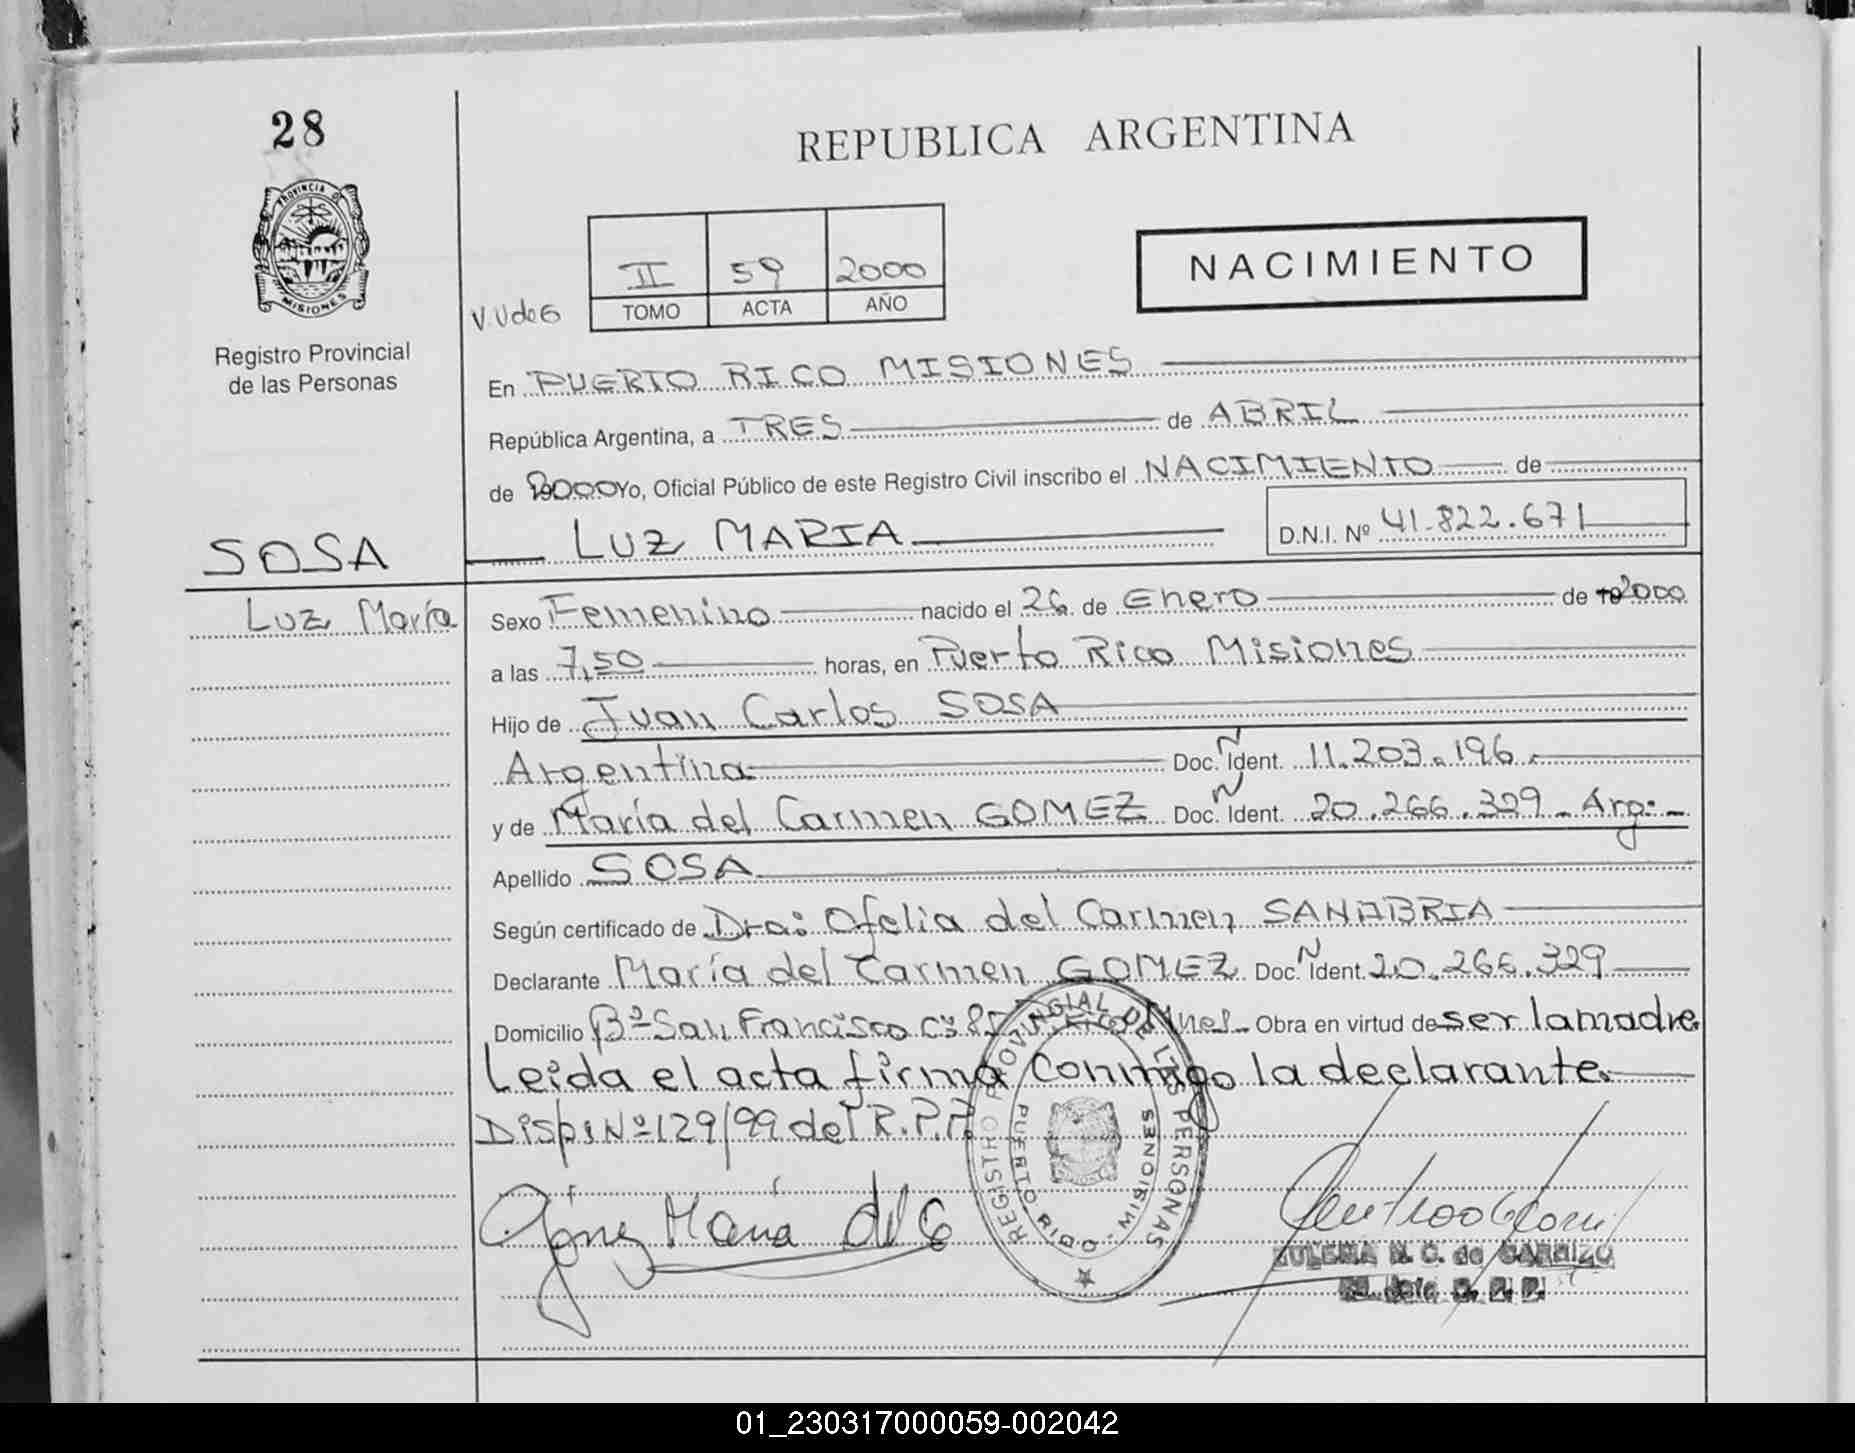 28
REPUBLICA ARGENTINA
PROVINCIA DE MISIONES
Registro Provincial
de las Personas
II 59 2000
TOMO ACTA AÑO
NACIMIENTO
V.Vde6
En PUERTO RICO MISIONES
República Argentina, a TRES de ABRIL
de 2000 Yo, Oficial Público de este Registro Civil inscribo el NACIMIENTO de
LUZ MARIA D.N.I. Nº 41.822.671
SOSA
Luz María
Sexo Femenino nacido el 26 de Enero de 2000
a las 7,50 horas, en Puerto Rico Misiones
Hijo de Juan Carlos SOSA
Argentina Doc. Ñ Ident. 11.203.196.
y de María del Carmen GOMEZ Doc. Ñ Ident. 20.266.329 - Arg:-
Apellido SOSA
Según certificado de Dra: Ofelia del Carmen SANABRIA
Declarante María del Carmen GOMEZ Doc. Ñ Ident. 20.266.329
Domicilio Bº San Francisco Obra en virtud de ser la madre
Leída el acta firma conmigo la declarante.
Disp: Nº 129/99 del R.P.P.
REGISTRO PROVINCIAL DE LAS PERSONAS
PUERTO RICO - MISIONES
Gómez María del C
ZULEMA N. C. de CARRIZO
R. P. P.
01_230317000059-002042